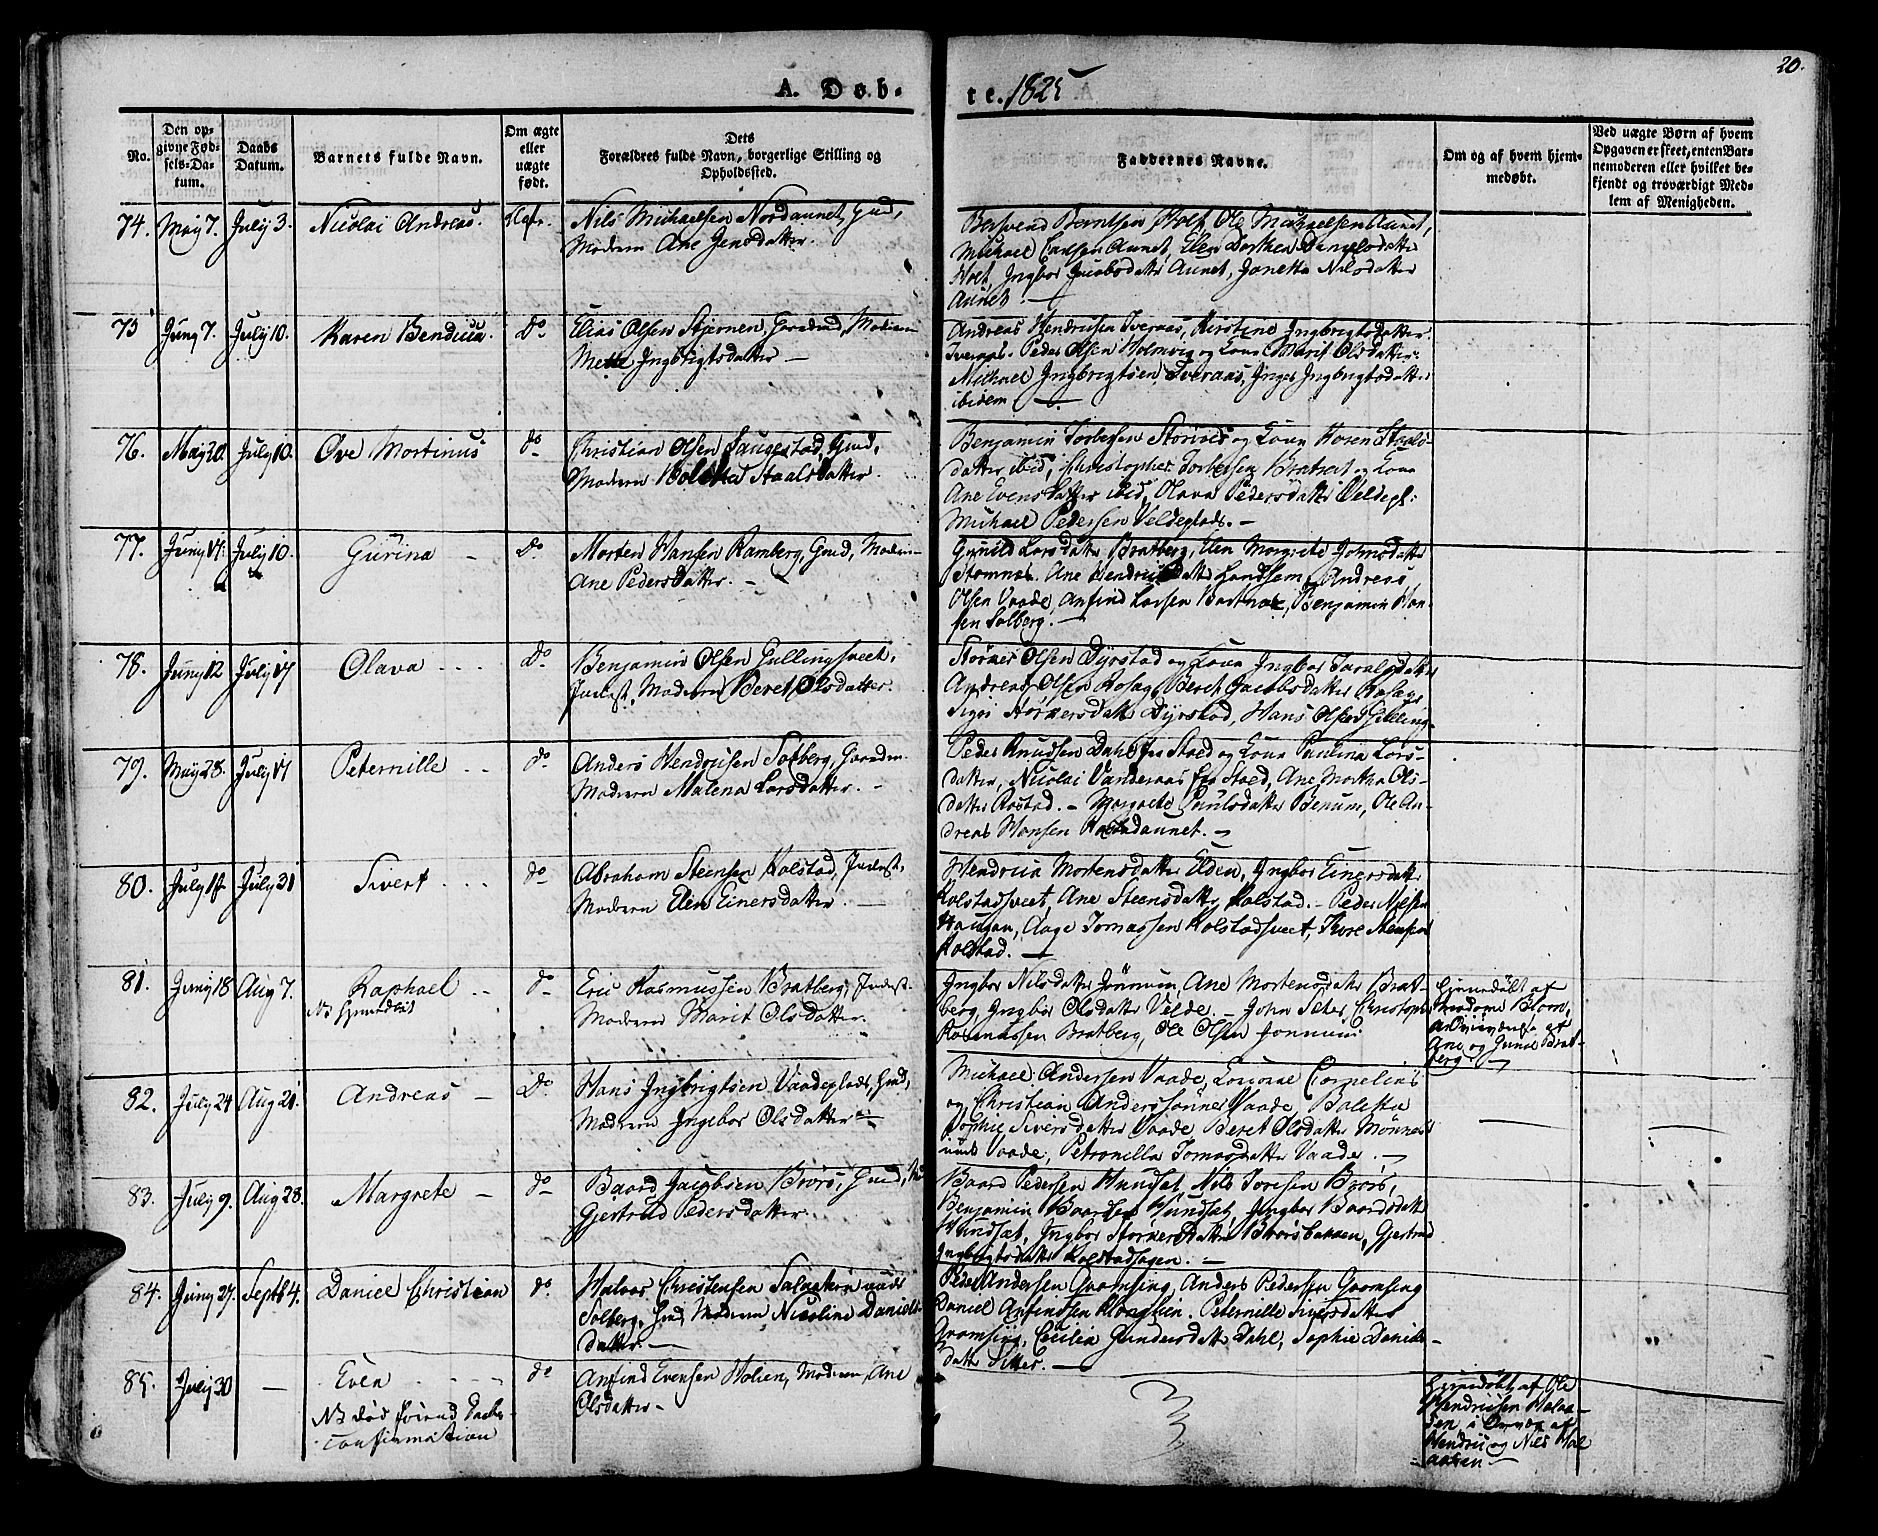 20.
A. Døb-
te. 1825
No.
Den op-
givne Fød-
sels-Da-
tum.
Daabs
Datum.
Barnets fulde Navn.
Om ægte
eller
uægte
født.
Dets
Forældres fulde Navn, borgerlige Stilling og
Opholdssted.
Faddernes Navne.
Om og af hvem hjem-
medøbt.
Ved uægte Børn af hvem
Opgaven er skeet, enten Bar-
nemoderen eller hvilket be-
kjendt og troværdigt Med-
lem af Menigheden.
74. May 7. July 3. Nicolai Andreas.
Nils Michaelsen Nordaunet, Gmd,
Modern Ane Jensdatter.
Berntsen Holt, Ole Michaelsen Aunet,
Michael Aunet, Elen Dorthea Danielsdatter
Holt, Ingbor Jacobsdatter Aunet, Janetta Nilsdatter
Aunet. —
75 Juny 7. July 10. Karen Bendica. do
Elias Olsen Stjernen, Modern
Mette Ingbrigtsdatter —
Andreas Hendricsen Tveraas, Kirstine Ingbrigtsdatter
Tveraas. Peder Olsen Holmvig og Kone Marit Olsdatter.
Michael Ingbrigtsen Tveraas, Inger Ingbrigtsdatter
ibidem —
76. May 20 July 10. Ove Mortinus do
Christian Olsen Saugestad, Gmd,
Modern Staalsdatter.
Benjamin Torbersen og Kona Karen Staals
datter ibid, Christopher Torbersen og Kona
Ane Evensdatter ibid, Olava Pedersdatter Veldepl:
Michael Pedersen Veldeplads. —
77. Juny 17. July 10. Gurina — Do
Morten Hansen Ramberg, Gmd, Modern
Ane Pedersdatter. —
Gunild Larsdatter Bratberg, Elen Margrete Johnsdatter
Stamnes. Ane Hendricsdatter Landsem, Andreas
Olsen Vaade, Anfind Larsen Bartnes, Benjamin Han-
sen Solberg. —
78. Juny 12 July 17 Olava . . . . Do
Benjamin Olsen Gullingsveet,
Inderst, Modern Beret Olsdatter.
Størker Olsen Dyrstad og Kona Ingbor
Andreas Olsen Rosag, Beret Jacobsdatter Rosag,
Størkersdatter Dyrstad, Hans Olsen Gulling
79. May 28. July 17 Peternille . . do
Anders Hendricsen Solberg, Gaardm
Modern Malena Larsdatter. —
Peder Knudsen Dahl og Kona Paulina Lars-
datter, Nicolai Vanderaas fra Stoed, Ane Martha Ols-
datter Rostad. — Margrete Paulsdatter Benum, Ole An-
dreas Hansen Rostadaunet. —
80. July 14 July 31 Sivert . . . do
Abraham Steensen Kolstad, Inderst,
Modern Elen Einersdatter. —
Hendrica Mortensdatter Elden, Ingbor Einersdatter
Kolstadsveet, Ane Steensdatter Kolstad. — Peder Nilsen
Haugan, Aage Tomassen Kolstadsveet, Tore Steensen
Kolstad. —
81. Juny 18 Aug 7. Raphael . . do
NB hjemdøbt
Eric Rasmussen Bratberg, Inderst.
Modern Marit Olsdatter.
Ingbor Nilsdatter Jønnum, Ane Mortensdatter Brat-
berg, Ingbor Olsdatter Velde. — John Sæter, Christopher
Rasmussen Bratberg, Ole Olsen Jønnum.
Hjemmedøbt af
Blom,
i Overværelse af
Ane og Brat-
berg —
82. July 24 Aug 21. Andreas — Do
Hans Ingbrigtsen Vaadeplads, Gmd,
Modern Ingebor Olsdatter —
Michael Andersen Vaade, Cornelius
og Christian Anderssønner Vaade,
Sophie Siversdatter Vaade Beret Olsdatter
Vaade, Petronella Tomasdatter Vaade. —
83. July 9. Aug 28. Margrete — do
Baard Jacobsen Brørs, Gmd,
Gjertrud Pedersdatter
Baard Pedersen Hundsæt, Nils Toresen Brørs,
Benjamin Baardsen Hundsæt, Ingbor Baardsdatter
Hundsæt, Ingbor Størkersdatter Brørsbakken, Gjertrud
Ingbrigtsdatter Kolstadhagen. —
84. Juny 27. Septb 4. Daniel Christian do.
Halvor Christensen
Solberg, Gmd, Modern Nicoline Daniels
datter. —
Peder Andersen Gromsing, Anders Pedersen Gromsing
Daniel Anfindsen Peternille Siversdatter
Gromsing, Cecilia Gundersdatter Dahl, Sophie Daniels-
datter Sitter. —
85. July 30 — Even . . . . do
NB død forend Daabs-
confirmation
Anfind Evensen Holien, Modern, Ane
Olsdatter —
Hjemmedøbt af Ole
Hendricsen
i af
Hendric og Nils